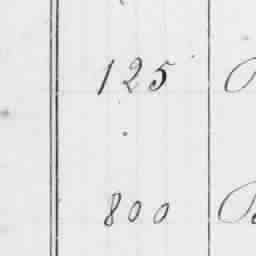 125
800